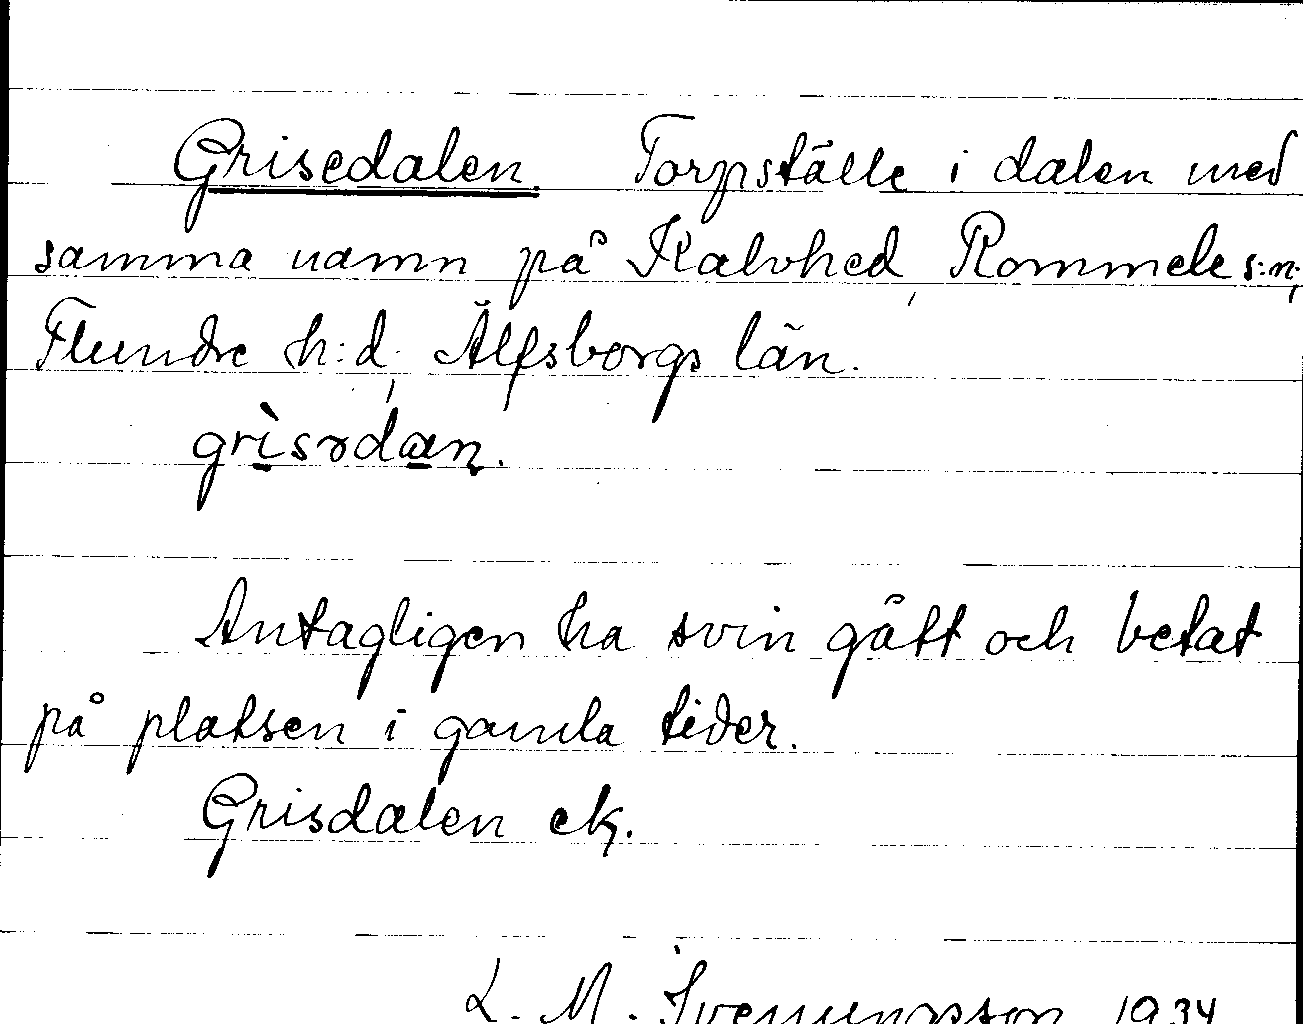 Grisedalen. Torpställe i dalen med
samma namn på Kalvhed, Rommele s:n;
Flundre h:d, Älfsborgs län.
grìsədaṉ.
Antagligen ha svin gått och betat
på platsen i gamla tider.
Grisdalen ek.
L. M. Svenungsson 1934